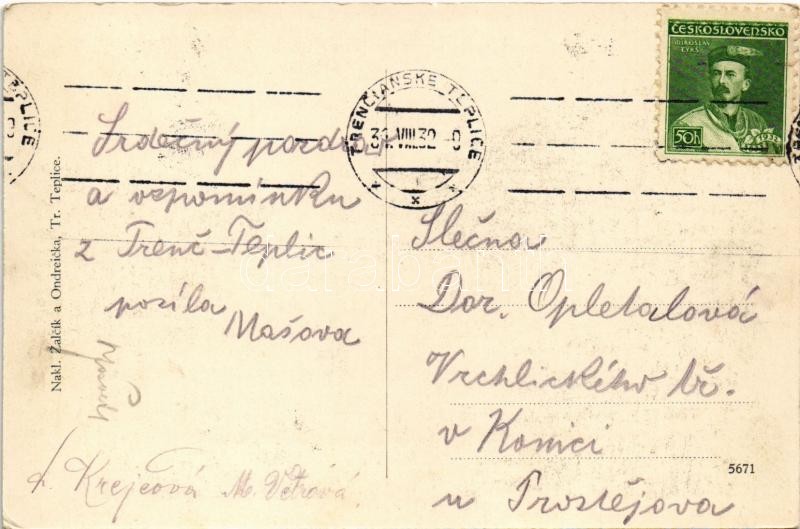 ČESKOSLOVENSKO
MIROSLAV
TYRŠ
50h
TRENČIANSKE TEPLICE
31.VIII.32-9
TEPLICE
Srdečný pozdrav
a vzpomínku
z Trenč-Teplic
posílá
Mašova
L. Krejčová M. Větrová
Slečna
Dor. Opletalová
Vrchlického tř.
v Konici
u Prostějova
5671
Nakl. Žalčík a Ondreička, Tr. Teplice.
darabanth